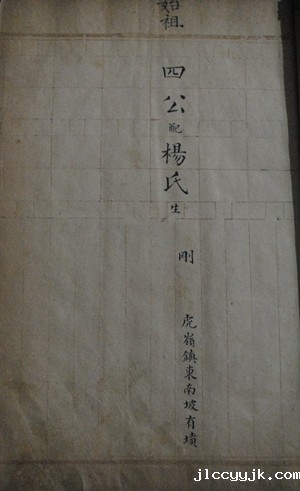 始祖
四公配楊氏生
剛
虎嶺鎮東南坡有墳
jlccyyjk.com